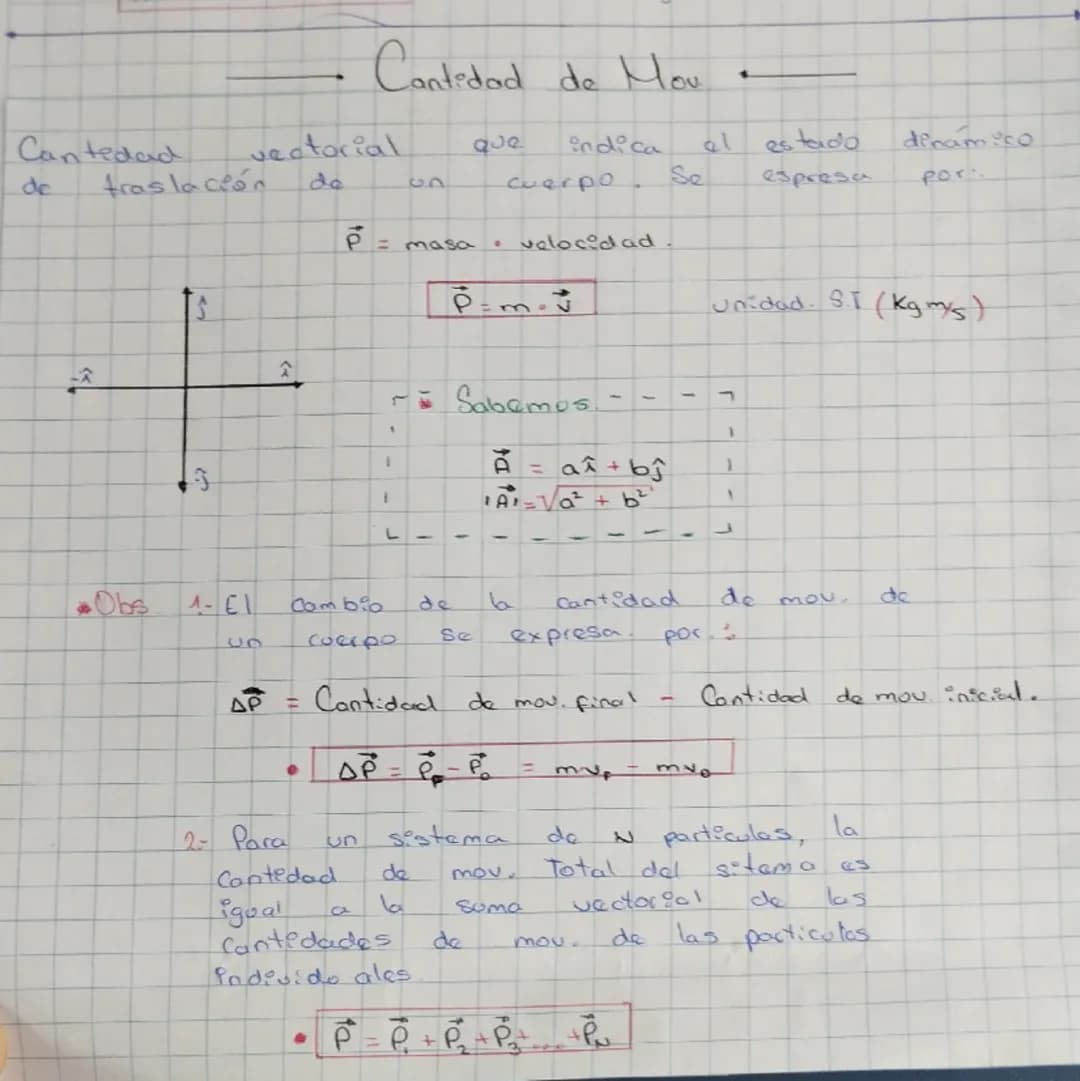 Cantidad de Mov
Cantidad vectorial que indica el estado dinámico
de traslación de un cuerpo. Se espresa por:
P⃗ = masa · velocidad.
P⃗ = m · v⃗
Unidad. S.I (Kg m/s)
ĵ
-î
î
-ĵ
Sabemos
A⃗ = aî + bĵ
|A⃗| = √a² + b²
Obs 1- El cambio de la cantidad de mov. de
un cuerpo se expresa por :
ΔP⃗ = Cantidad de mov. final - Cantidad de mov. inicial.
ΔP⃗ = P⃗F - P⃗o = mvF - mvo
2- Para un sistema de N partículas, la
Cantidad de mov. Total del sitema es
igual a la suma vectorial de las
Cantidades de mov. de las particulas
individuales
P⃗ = P⃗1 + P⃗2 + P⃗3 + .... + P⃗N